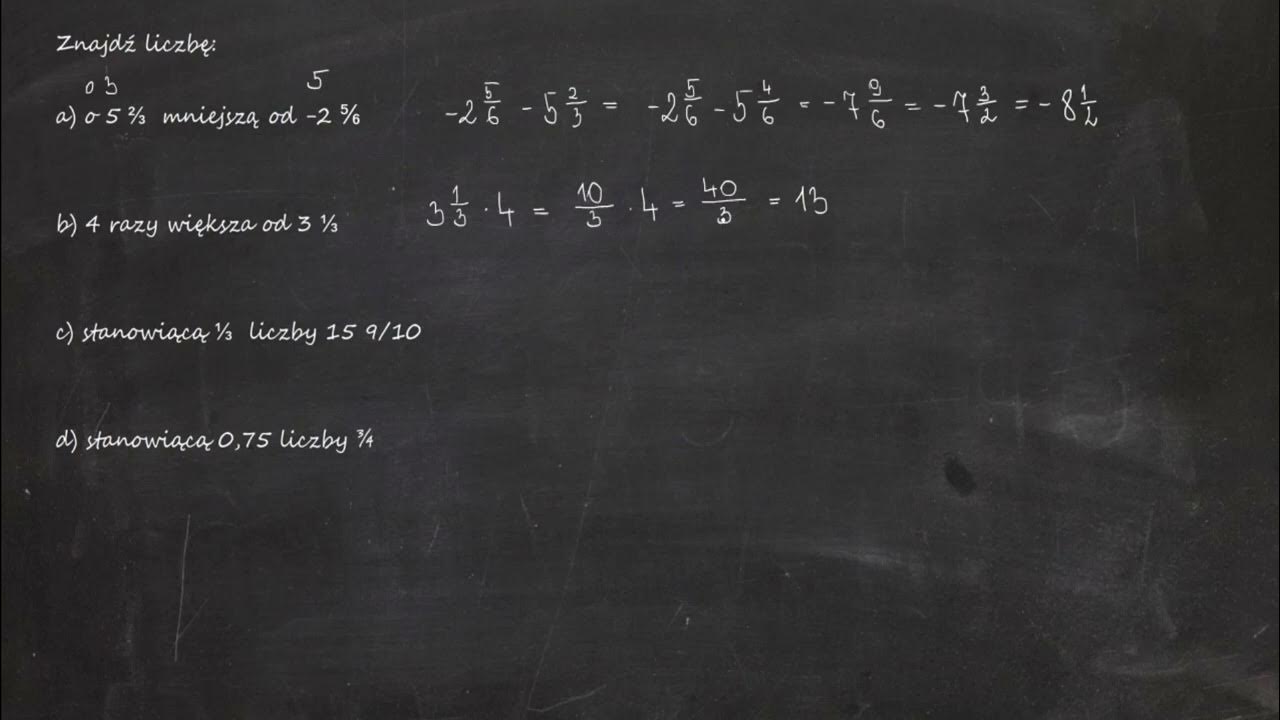 Znajdź liczbę:
o 3 5
a) o 5 ⅔ mniejszą od -2 ⅚ -2 5/6 - 5 2/3 = -2 5/6 - 5 4/6 = -7 9/6 = -7 3/2 = -8 1/2
b) 4 razy większa od 3 ⅓ 3 1/3 · 4 = 10/3 · 4 = 40/3 = 13
c) stanowiącą ⅓ liczby 15 9/10
d) stanowiącą 0,75 liczby ¾